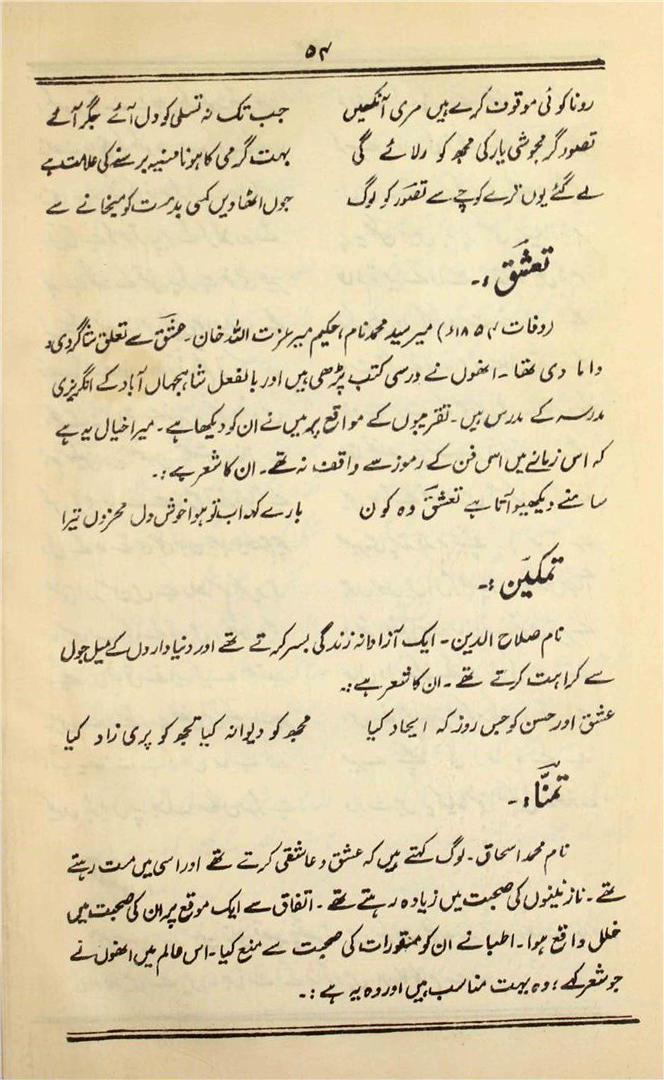 ۵۴
رونا کوئی موقوف کرے ہیں مری آنکھیں جب تک نہ تسلی کو دل آئے جگر آئے
تصور گرمجوشی یار کی مجھ کو رلائے گی بہت گرمی کا ہونا مینہ برسنے کی علامت ہے
لے گئے یوں ترے کوچے سے تصور کو لوگ جوں اٹھا دیں کسی بدمست کو میخانے سے
تعشق :۔
(وفات ۱۸۵۴ء) میر سید محمد نام، حکیم میر عزت اللہ خان۔ عشق سے تعلق شاگردی و
دامادی تھا۔ انھوں نے درسی کتب پڑھی ہیں اور بالفعل شاہجہاں آباد کے انگریزی
مدرسہ کے مدرس ہیں۔ تقریبوں کے مواقع پر میں نے ان کو دیکھا ہے۔ میرا خیال یہ ہے
کہ اس زمانے میں اس فن کے رموز سے واقف نہ تھے۔ ان کا شعر ہے :۔
سامنے دیکھیو آتا ہے تعشق وہ کون بارے کہہ اب تو ہوا خوش دل محزوں تیرا
تمکین :۔
نام صلاح الدین۔ ایک آزادانہ زندگی بسر کرتے تھے اور دنیا داروں کے میل جول
سے کراہت کرتے تھے۔ ان کا شعر ہے :۔
عشق اور حسن کو جس روز کہ ایجاد کیا مجھ کو دیوانہ کیا تجھ کو پری زاد کیا
تمنّا :۔
نام محمد اسحاق۔ لوگ کہتے ہیں کہ عشق و عاشقی کرتے تھے اور اسی میں مست رہتے
تھے۔ نازنینوں کی صحبت میں زیادہ رہتے تھے۔ اتفاق سے ایک موقع پر ان کی صحبت میں
خلل واقع ہوا۔ اطبا نے ان کو مستورات کی صحبت سے منع کیا۔ اس عالم میں انھوں نے
جو شعر کہے، وہ بہت مناسب ہیں اور وہ یہ ہے :۔